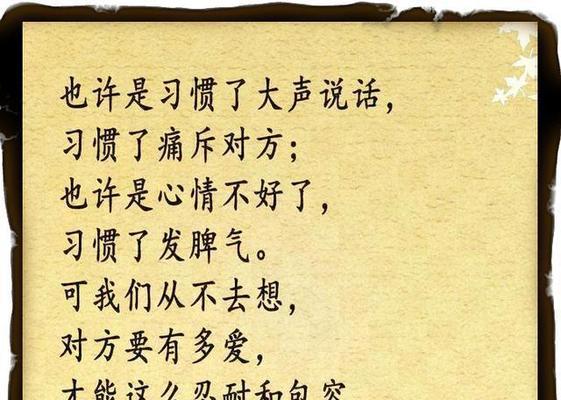 也许是习惯了大声说话，
习惯了痛斥对方；
也许是心情不好了，
习惯了发脾气。
可我们从不去想，
对方要有多爱，
才能这么忍耐和包容